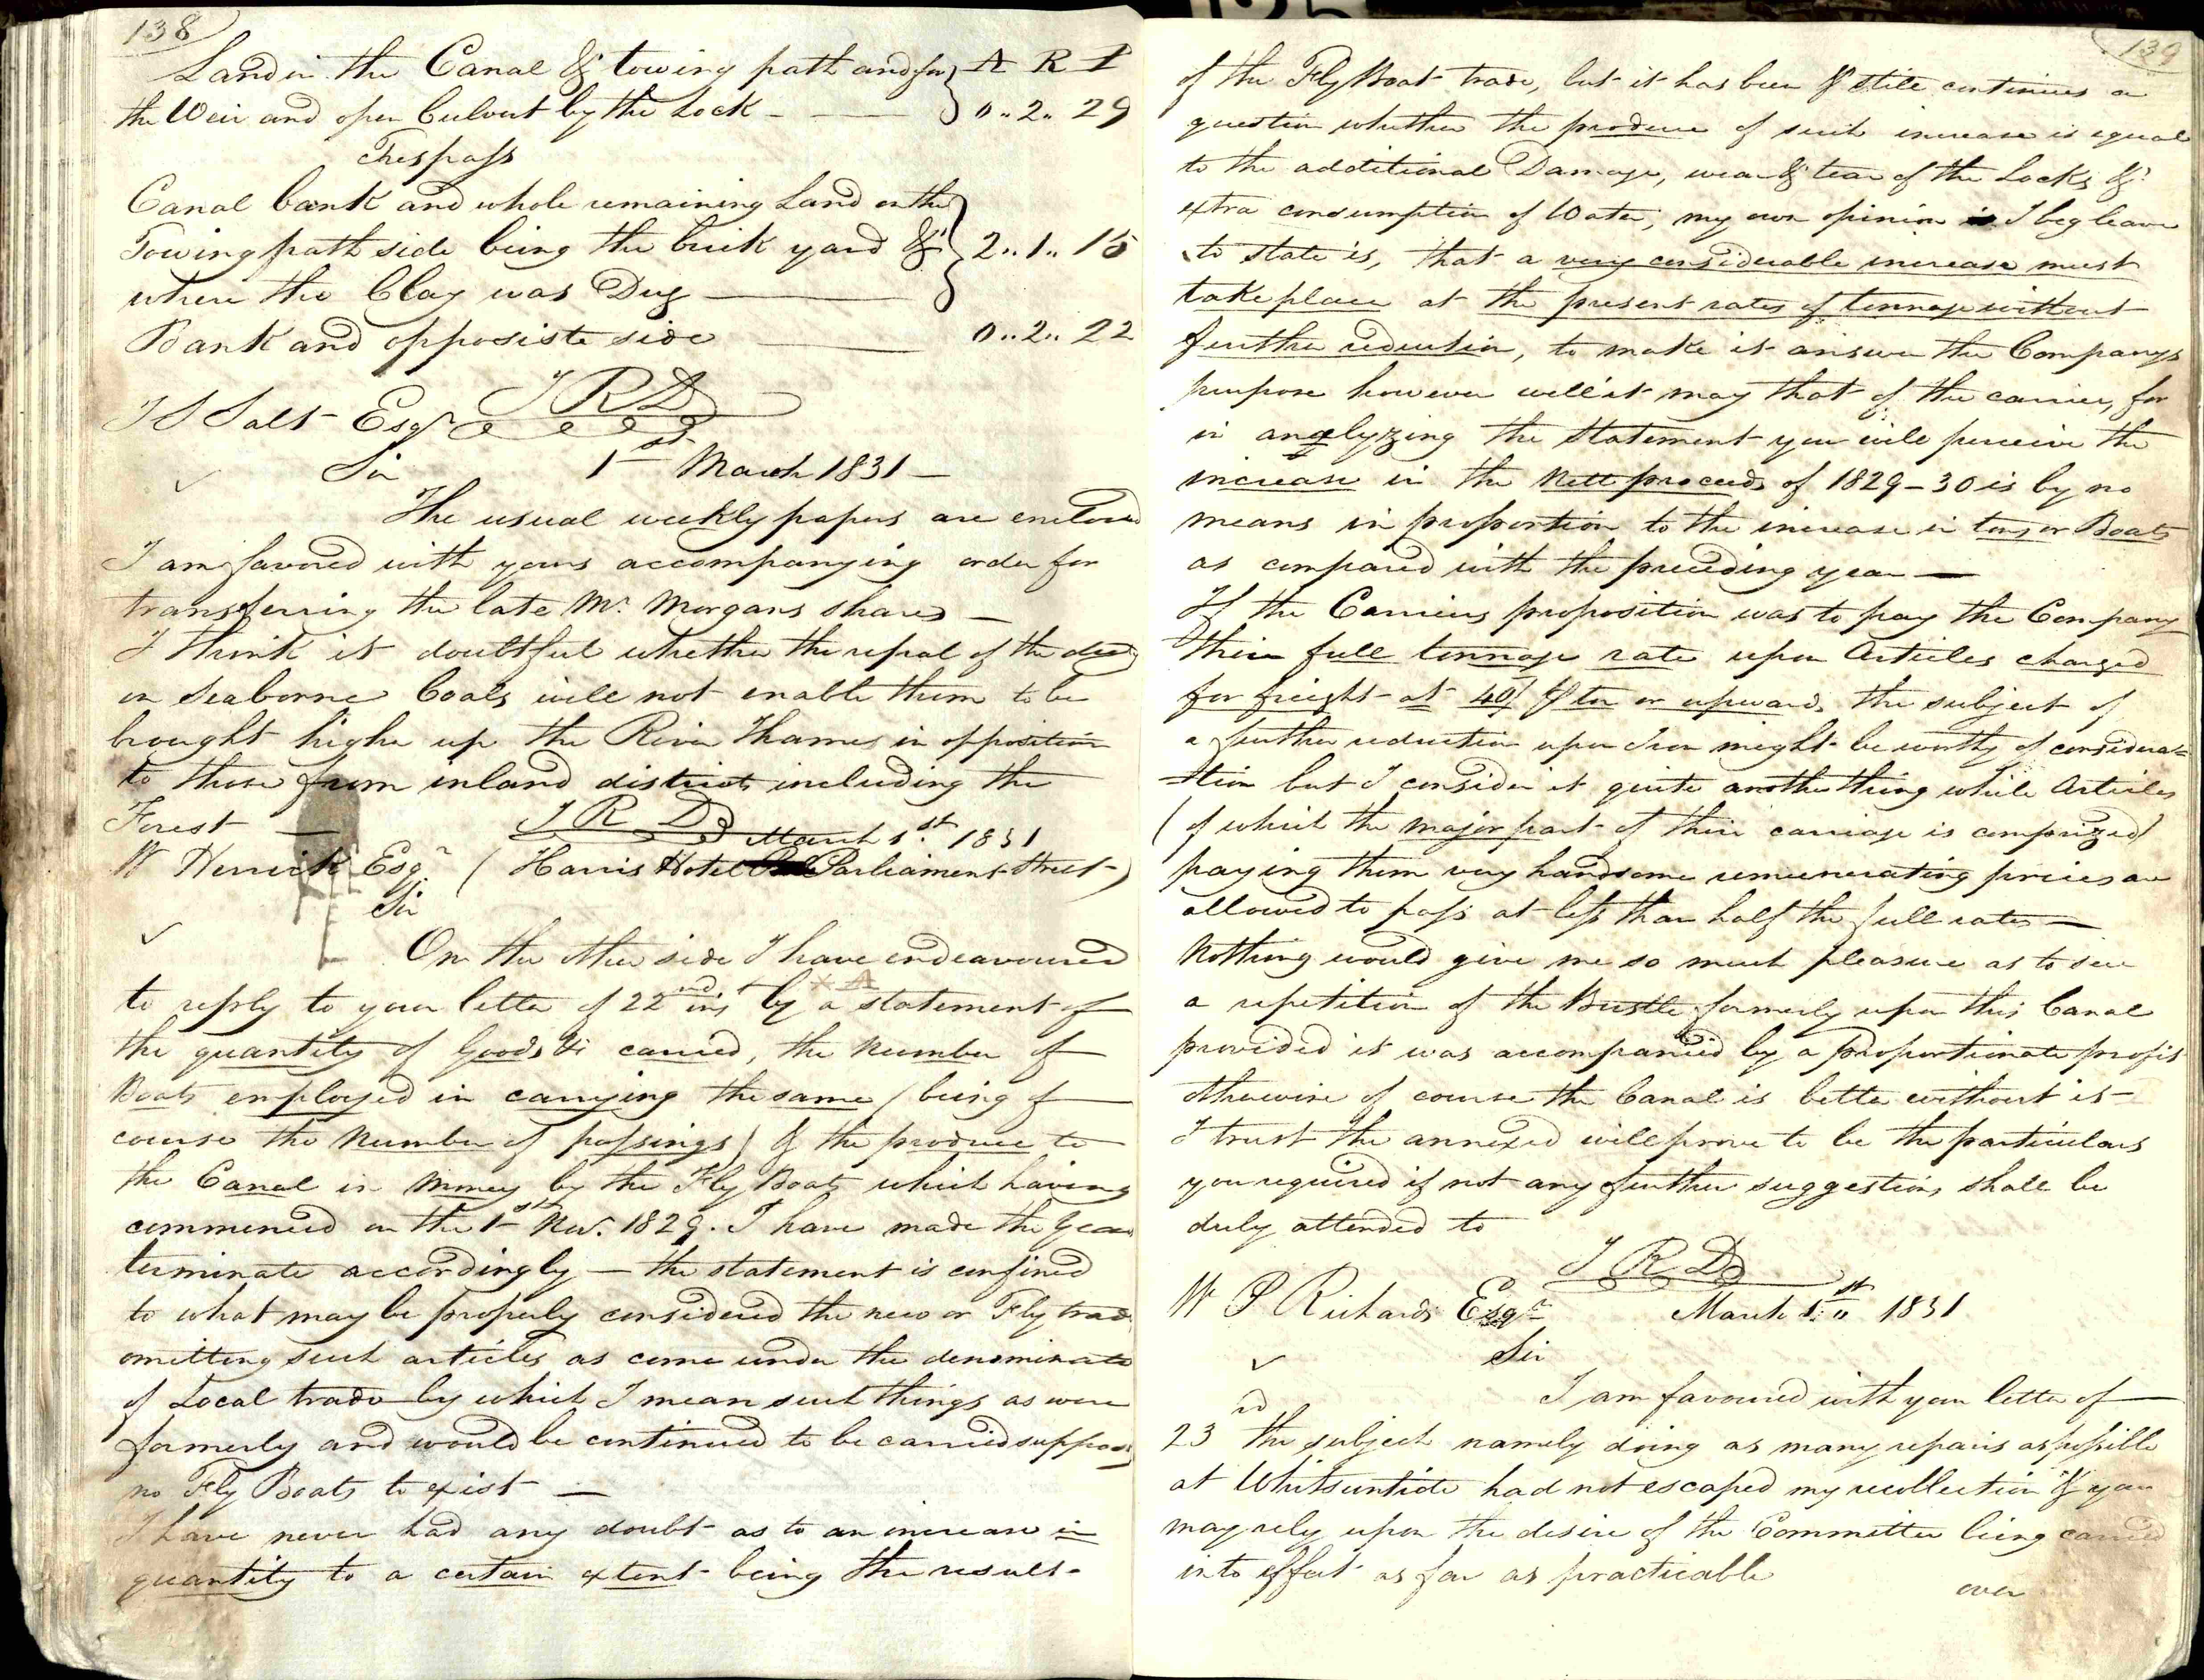 138
Land in the Canal & towing path and for } A R P
the Weir and open Culvert by the Lock - — } 0.. 2.. 29
Trespass
Canal bank and whole remaining Land on the
Towing path side being the brick yard & } 2.. 1.. 15
where the Clay was Dug —
Bank and opposiste side — 0.. 2.. 22
I R D
Salt Esqr
Sir 1st March 1831 —
The usual weekly papers are enclosed
I am favored with yours accompanying order for
transferring the late Mr. Morgans shares —
I think it doubtful whether the repeal of the duty
on Seaborne Coals will not enable them to be
brought higher up the River Thames in opposition
to those from inland districts including the
Forest —
I R D March 1st. 1831
W Herrick Esqr ( Harris Hotel Parliament Street )
Sir
On the other side I have endeavoured
to reply to your letter of 22nd inst by a statement of
the quantity of Goods &c carried, the number of
Boats employed in carrying the same ( being of
course the number of passings ) & the produce to
the Canal in Money by the Fly Boats which having
commenced on the 1st Nov. 1829. I have made the Year
terminate accordingly — the statement is confined
to what may be properly considered the new or Fly trade
omitting such articles as come under the denominate
of Local trade by which I mean such things as were
formerly and would be continued to be carried suppose
no Fly Boats to exist —
I have never had any doubt as to an increase in
quantity to a certain extent being the result
139
of the Fly Boat trade, but it has been & stile continues a
question whether the produce of such increase is equal
to the additional Damage, wear & tear of the Locks &
extra consumption of Water, my own opinion I beg leave
to state is, that a very considerable increase must
take place at the present rates of tonnage without
further reduction, to make it answer the Companys
purpose however well it may that of the carrier, for
in analyzing the statement you will perceive the
increase in the Nett proceeds of 1829-30 is by no
means in proportion to the increase in tons or Boats
as compared with the preceding year —
If the Carriers proposition was to pay the Company
their full tonnage rate upon Articles charged
for freight at 40/ ton or upwards the subject of
a further reduction upon Iron might be worthy of considera=
=tion but I consider it quite another thing while Articles
( of which the major part of their carriage is comprized )
paying them very handsome remunerating prices are
allowed to pass at less than half the full rates —
Nothing would give me so much pleasure as to see
a repetition of the Bustle formerly upon this Canal
provided it was accompanied by a proportionate profit
otherwise of course the Canal is better without it -
I trust the annexed will prove to be the particulars
you required if not any further suggestions shall be
duly attended to
I R D
W P Richards Esqr March 1st 1831
Sir
I am favoured with your letter of
23rd the subject namely doing as many repairs as possible
at Whitsuntide had not escaped my recollection & you
may rely upon the desire of the Committee being carried
into effect as far as practicable
over